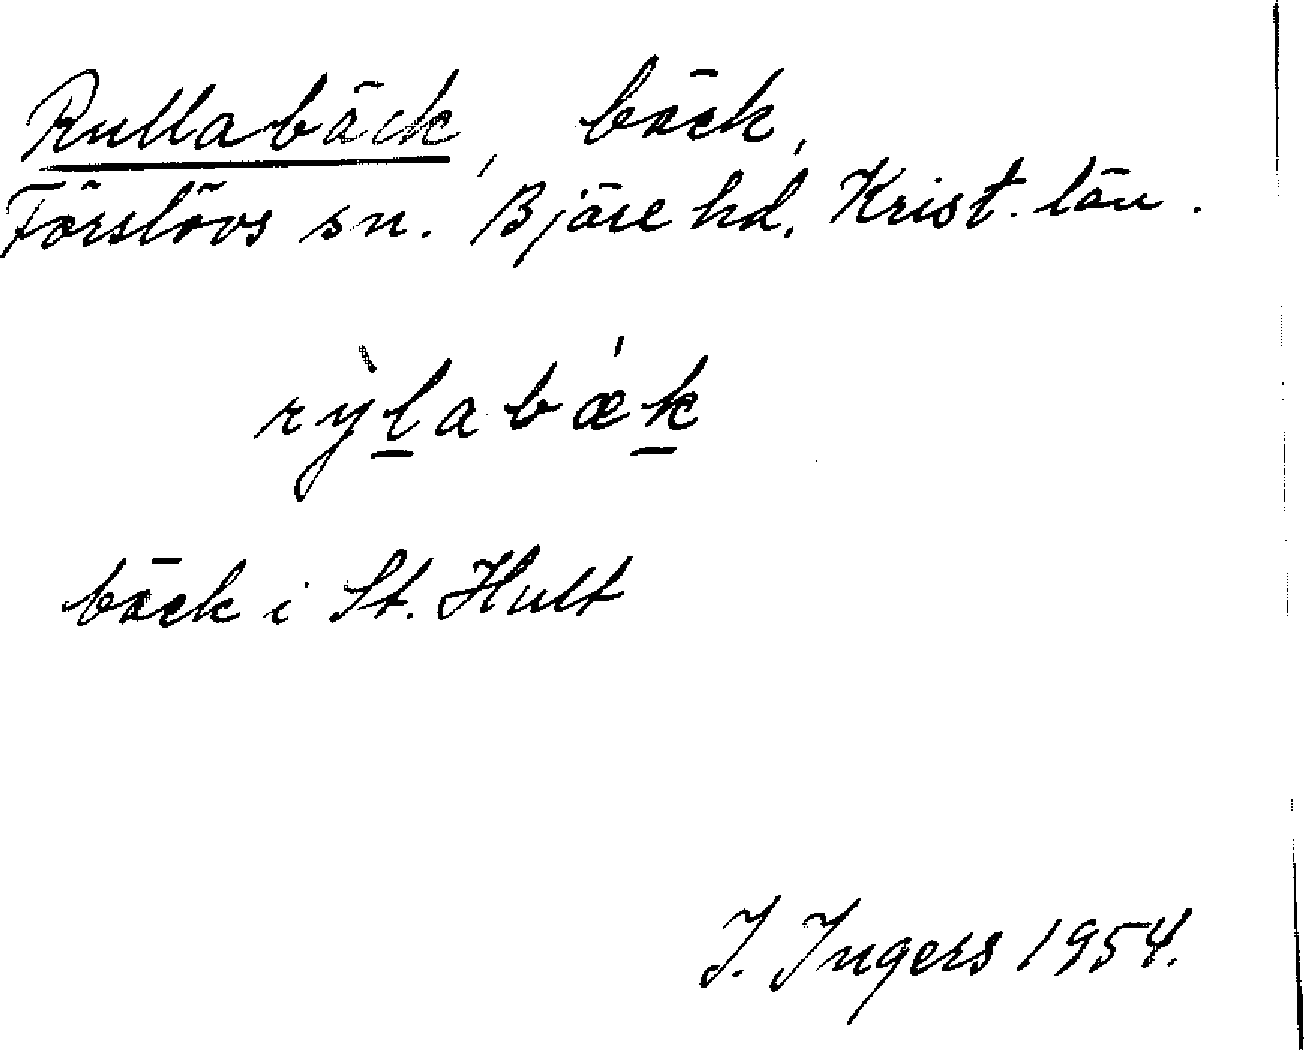 Rullabäck, bäck,
Förslövs sn. Bjäre hd. Krist. län.
rỳl̲abǽk̲
bäck i St. Hult
I. Ingers 1954.